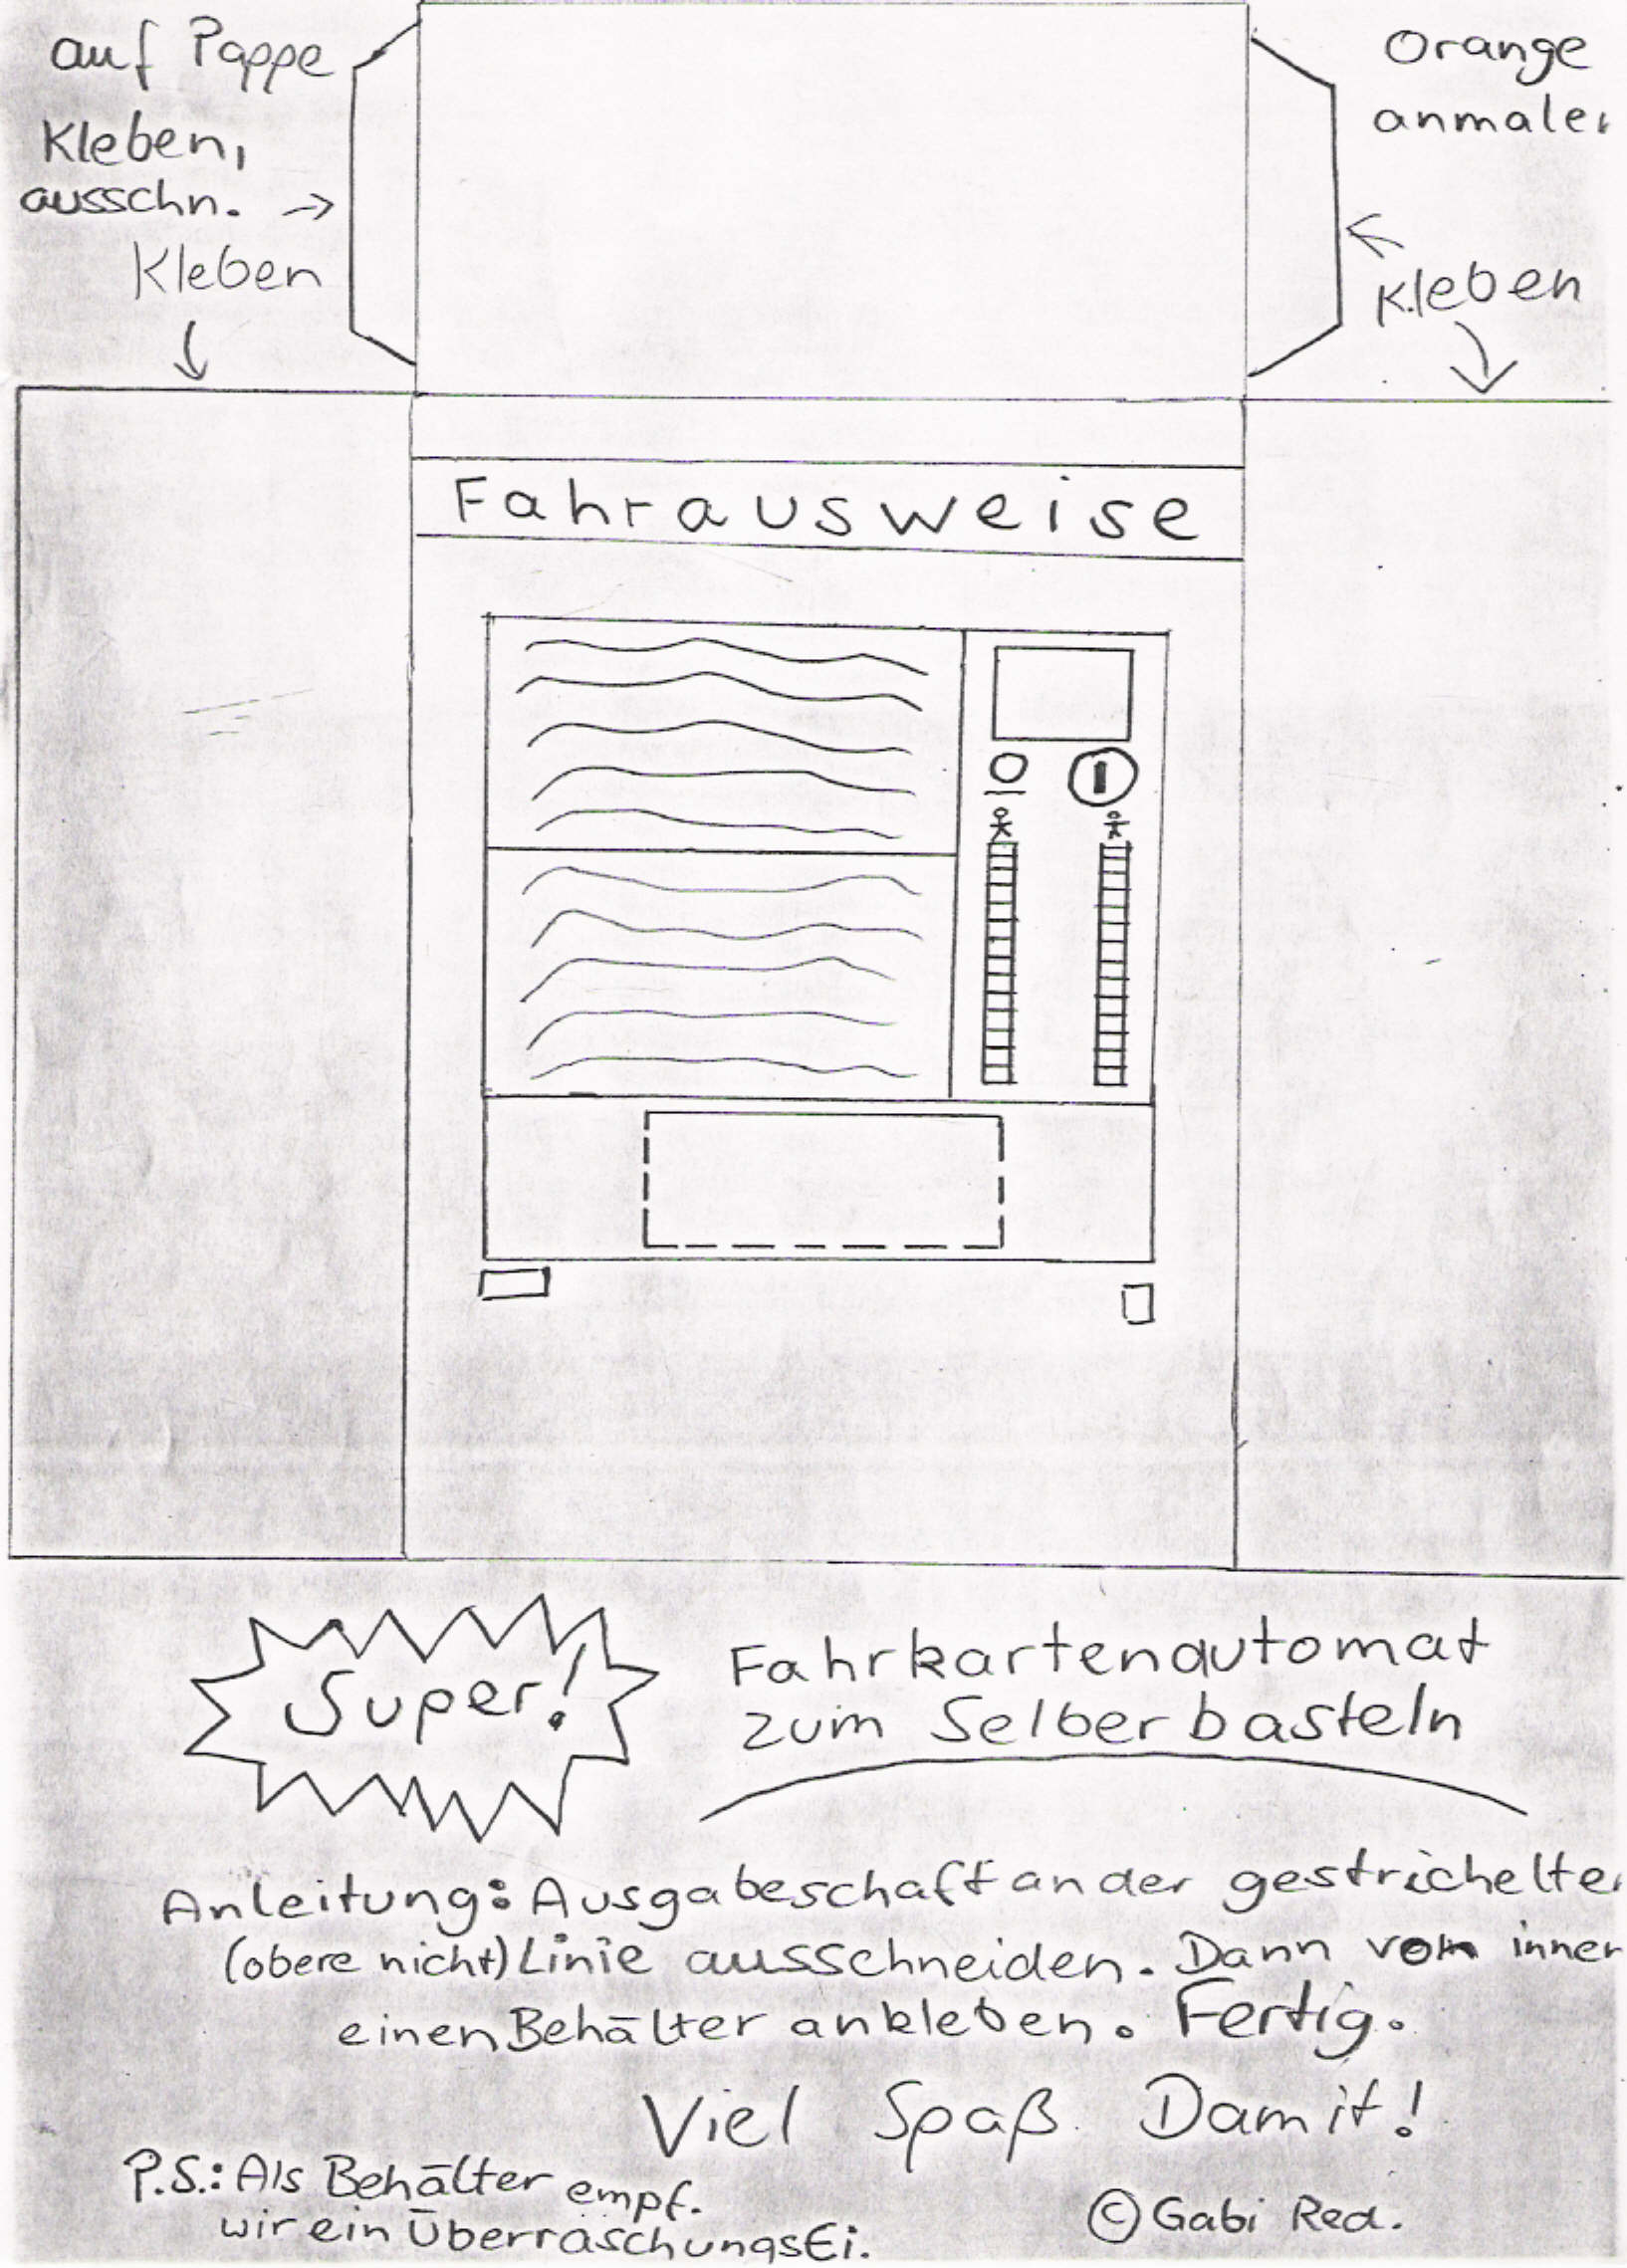 auf Pappe
Kleben,
ausschn. →
Kleben
Orange
anmalen
Kleben
Fahrausweise
Super!
Fahrkartenautomat
zum Selberbasteln
Anleitung: Ausgabeschaft an der gestrichelten
(obere nicht) Linie ausschneiden. Dann von innen
einen Behälter ankleben. Fertig.
Viel Spaß Damit!
P.S.: Als Behälter empf.
wir ein ÜberraschungsEi.
© Gabi Red.